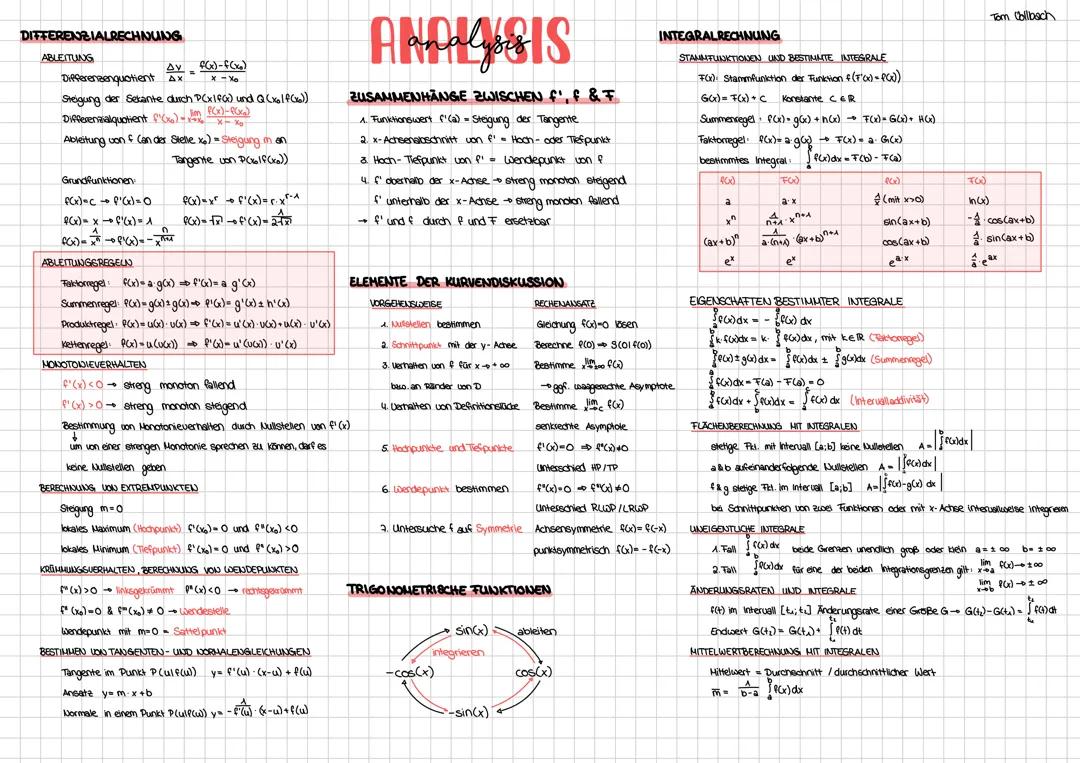 Tom Collbach
ANALYSIS
analysis
DIFFERENZIALRECHNUNG
ABLEITUNG
Differenzenquotient Δy/Δx = f(x)-f(x₀)/x-x₀
Steigung der Sekante durch P(x|f(x)) und Q(x₀|f(x₀))
Differenzialquotient f'(x₀) = lim x→x₀ f(x)-f(x₀)/x-x₀
Ableitung von f (an der Stelle x₀) = Steigung m an
Tangente von P(x₀|f(x₀))
Grundfunktionen:
f(x)=c → f'(x)=0 f(x)=xʳ → f'(x)=r·xʳ⁻¹
f(x)=x → f'(x)=1 f(x)=√x → f'(x)=1/2√x
f(x)=1/xⁿ → f'(x)=-n/xⁿ⁺¹
ABLEITUNGSREGELN
Faktorregel: f(x)=a·g(x) ⇒ f'(x)=a g'(x)
Summenregel: f(x)=g(x)±g(x) ⇒ f'(x)=g'(x)±h'(x)
Produktregel: f(x)=u(x)·v(x) ⇒ f'(x)=u'(x)·v(x)+u(x)·v'(x)
Kettenregel: f(x)=u(v(x)) ⇒ f'(x)=u'(v(x))·v'(x)
MONOTONIEVERHALTEN
f'(x)<0 → streng monoton fallend
f'(x)>0 → streng monoton steigend
Bestimmung von Monotonieverhalten durch Nullstellen von f'(x)
↓
um von einer strengen Monotonie sprechen zu können, darf es
keine Nullstellen geben
BERECHNUNG VON EXTREMPUNKTEN
Steigung m=0
lokales Maximum (Hochpunkt) f'(x₀)=0 und f"(x₀)<0
lokales Minimum (Tiefpunkt) f'(x₀)=0 und f"(x₀)>0
KRÜMMUNGSVERHALTEN, BERECHNUNG VON WENDEPUNKTEN
f"(x)>0 → linksgekrümmt f"(x)<0 → rechtsgekrümmt
f"(x₀)=0 & f'"(x₀)≠0 → Wendestelle
Wendepunkt mit m=0 = Sattelpunkt
BESTIMMEN VON TANGENTEN- UND NORMALENGLEICHUNGEN
Tangente im Punkt P(u|f(u)) y=f'(u)·(x-u)+f(u)
Ansatz y=m·x+b
Normale in einem Punkt P(u|f(u)) y=-1/f'(u)·(x-u)+f(u)
ZUSAMMENHÄNGE ZWISCHEN f', f & F
1. Funktionswert f'(a) = Steigung der Tangente
2. x-Achsenabschnitt von f' = Hoch- oder Tiefpunkt
3. Hoch-Tiefpunkt von f' = Wendepunkt von f
4. f' oberhalb der x-Achse → streng monoton steigend
f' unterhalb der x-Achse → streng monoton fallend
→ f' und f durch f und F ersetzbar
ELEMENTE DER KURVENDISKUSSION
VORGEHENSWEISE RECHENANSATZ
1. Nullstellen bestimmen Gleichung f(x)=0 lösen
2. Schnittpunkt mit der y-Achse Berechne f(0) ⇒ S(0|f(0))
3. Verhalten von f für x→±∞ Bestimme lim x→±∞ f(x)
bzw. an Ränder von D → ggf. waagerechte Asymptote
4. Verhalten von Definitionslücke Bestimme lim x→c f(x)
senkrechte Asymptote
5. Hochpunkte und Tiefpunkte f'(x)=0 ⇒ f"(x)≠0
Unterschied HP/TP
6. Wendepunkt bestimmen f"(x)=0 ⇒ f'"(x)≠0
Unterschied RLWP/LRWP
7. Untersuche f auf Symmetrie Achsensymmetrie f(x)=f(-x)
punktsymmetrisch f(x)=-f(-x)
TRIGONOMETRISCHE FUNKTIONEN
sin(x) ableiten
integrieren
-cos(x) cos(x)
-sin(x)
INTEGRALRECHNUNG
STAMMFUNKTIONEN UND BESTIMMTE INTEGRALE
F(x): Stammfunktion der Funktion f (F'(x)=f(x))
G(x)=F(x)+C Konstante C∈ℝ
Summenregel: f(x)=g(x)+h(x) → F(x)=G(x)+H(x)
Faktorregel: f(x)=a·g(x) → F(x)=a·G(x)
bestimmtes Integral: ∫ₐᵇ f(x)dx=F(b)-F(a)
f(x) F(x) f(x) F(x)
a a·x 1/x (mit x>0) ln(x)
xⁿ 1/n+1·xⁿ⁺¹ sin(ax+b) -1/a·cos(ax+b)
(ax+b)ⁿ 1/a·(n+1)·(ax+b)ⁿ⁺¹ cos(ax+b) 1/a·sin(ax+b)
eˣ eˣ eᵃ·ˣ 1/a·eᵃˣ
EIGENSCHAFTEN BESTIMMTER INTEGRALE
∫ₐᵇ f(x)dx = -∫ᵇₐ f(x) dx
∫ₐᵇ k·f(x)dx = k·∫ₐᵇ f(x)dx, mit k∈ℝ (Faktorregel)
∫ₐᵇ f(x)±g(x)dx = ∫ₐᵇ f(x)dx ± ∫ₐᵇ g(x)dx (Summenregel)
∫ₐᵃ f(x)dx=F(a)-F(a)=0
∫ₐᵇ f(x)dx + ∫f(x)dx = ∫f(x) dx (Intervalladdivität)
FLÄCHENBERECHNUNG MIT INTEGRALEN
stetige Fkt. mit Intervall [a;b] keine Nullstellen A=|∫ₐᵇ f(x)dx|
a&b aufeinanderfolgende Nullstellen A=|∫ₐᵇ f(x)dx|
f&g stetige Fkt. im Intervall [a;b] A=|∫ₐᵇ f(x)-g(x) dx|
bei Schnittpunkten von zwei Funktionen oder mit x-Achse intervallweise integrieren
UNEIGENTLICHE INTEGRALE
1. Fall ∫ₐᵇ f(x)dx beide Grenzen unendlich groß oder klein a=±∞ b=±∞
2. Fall ∫ₐᵇ f(x)dx für eine der beiden Integrationsgrenzen gilt: lim x→a f(x)→±∞
lim x→b f(x)→±∞
ÄNDERUNGSRATEN UND INTEGRALE
f(t) im Intervall [t₁;t₂] Änderungsrate einer Größe G → G(t₂)-G(t₁) = ∫ f(t)dt
Endwert G(t₂) = G(t₁)+ ∫ f(t)dt
MITTELWERTBERECHNUNG MIT INTEGRALEN
Mittelwert = Durchschnitt / durchschnittlicher Wert
m̅ = 1/b-a ∫ₐᵇ f(x)dx